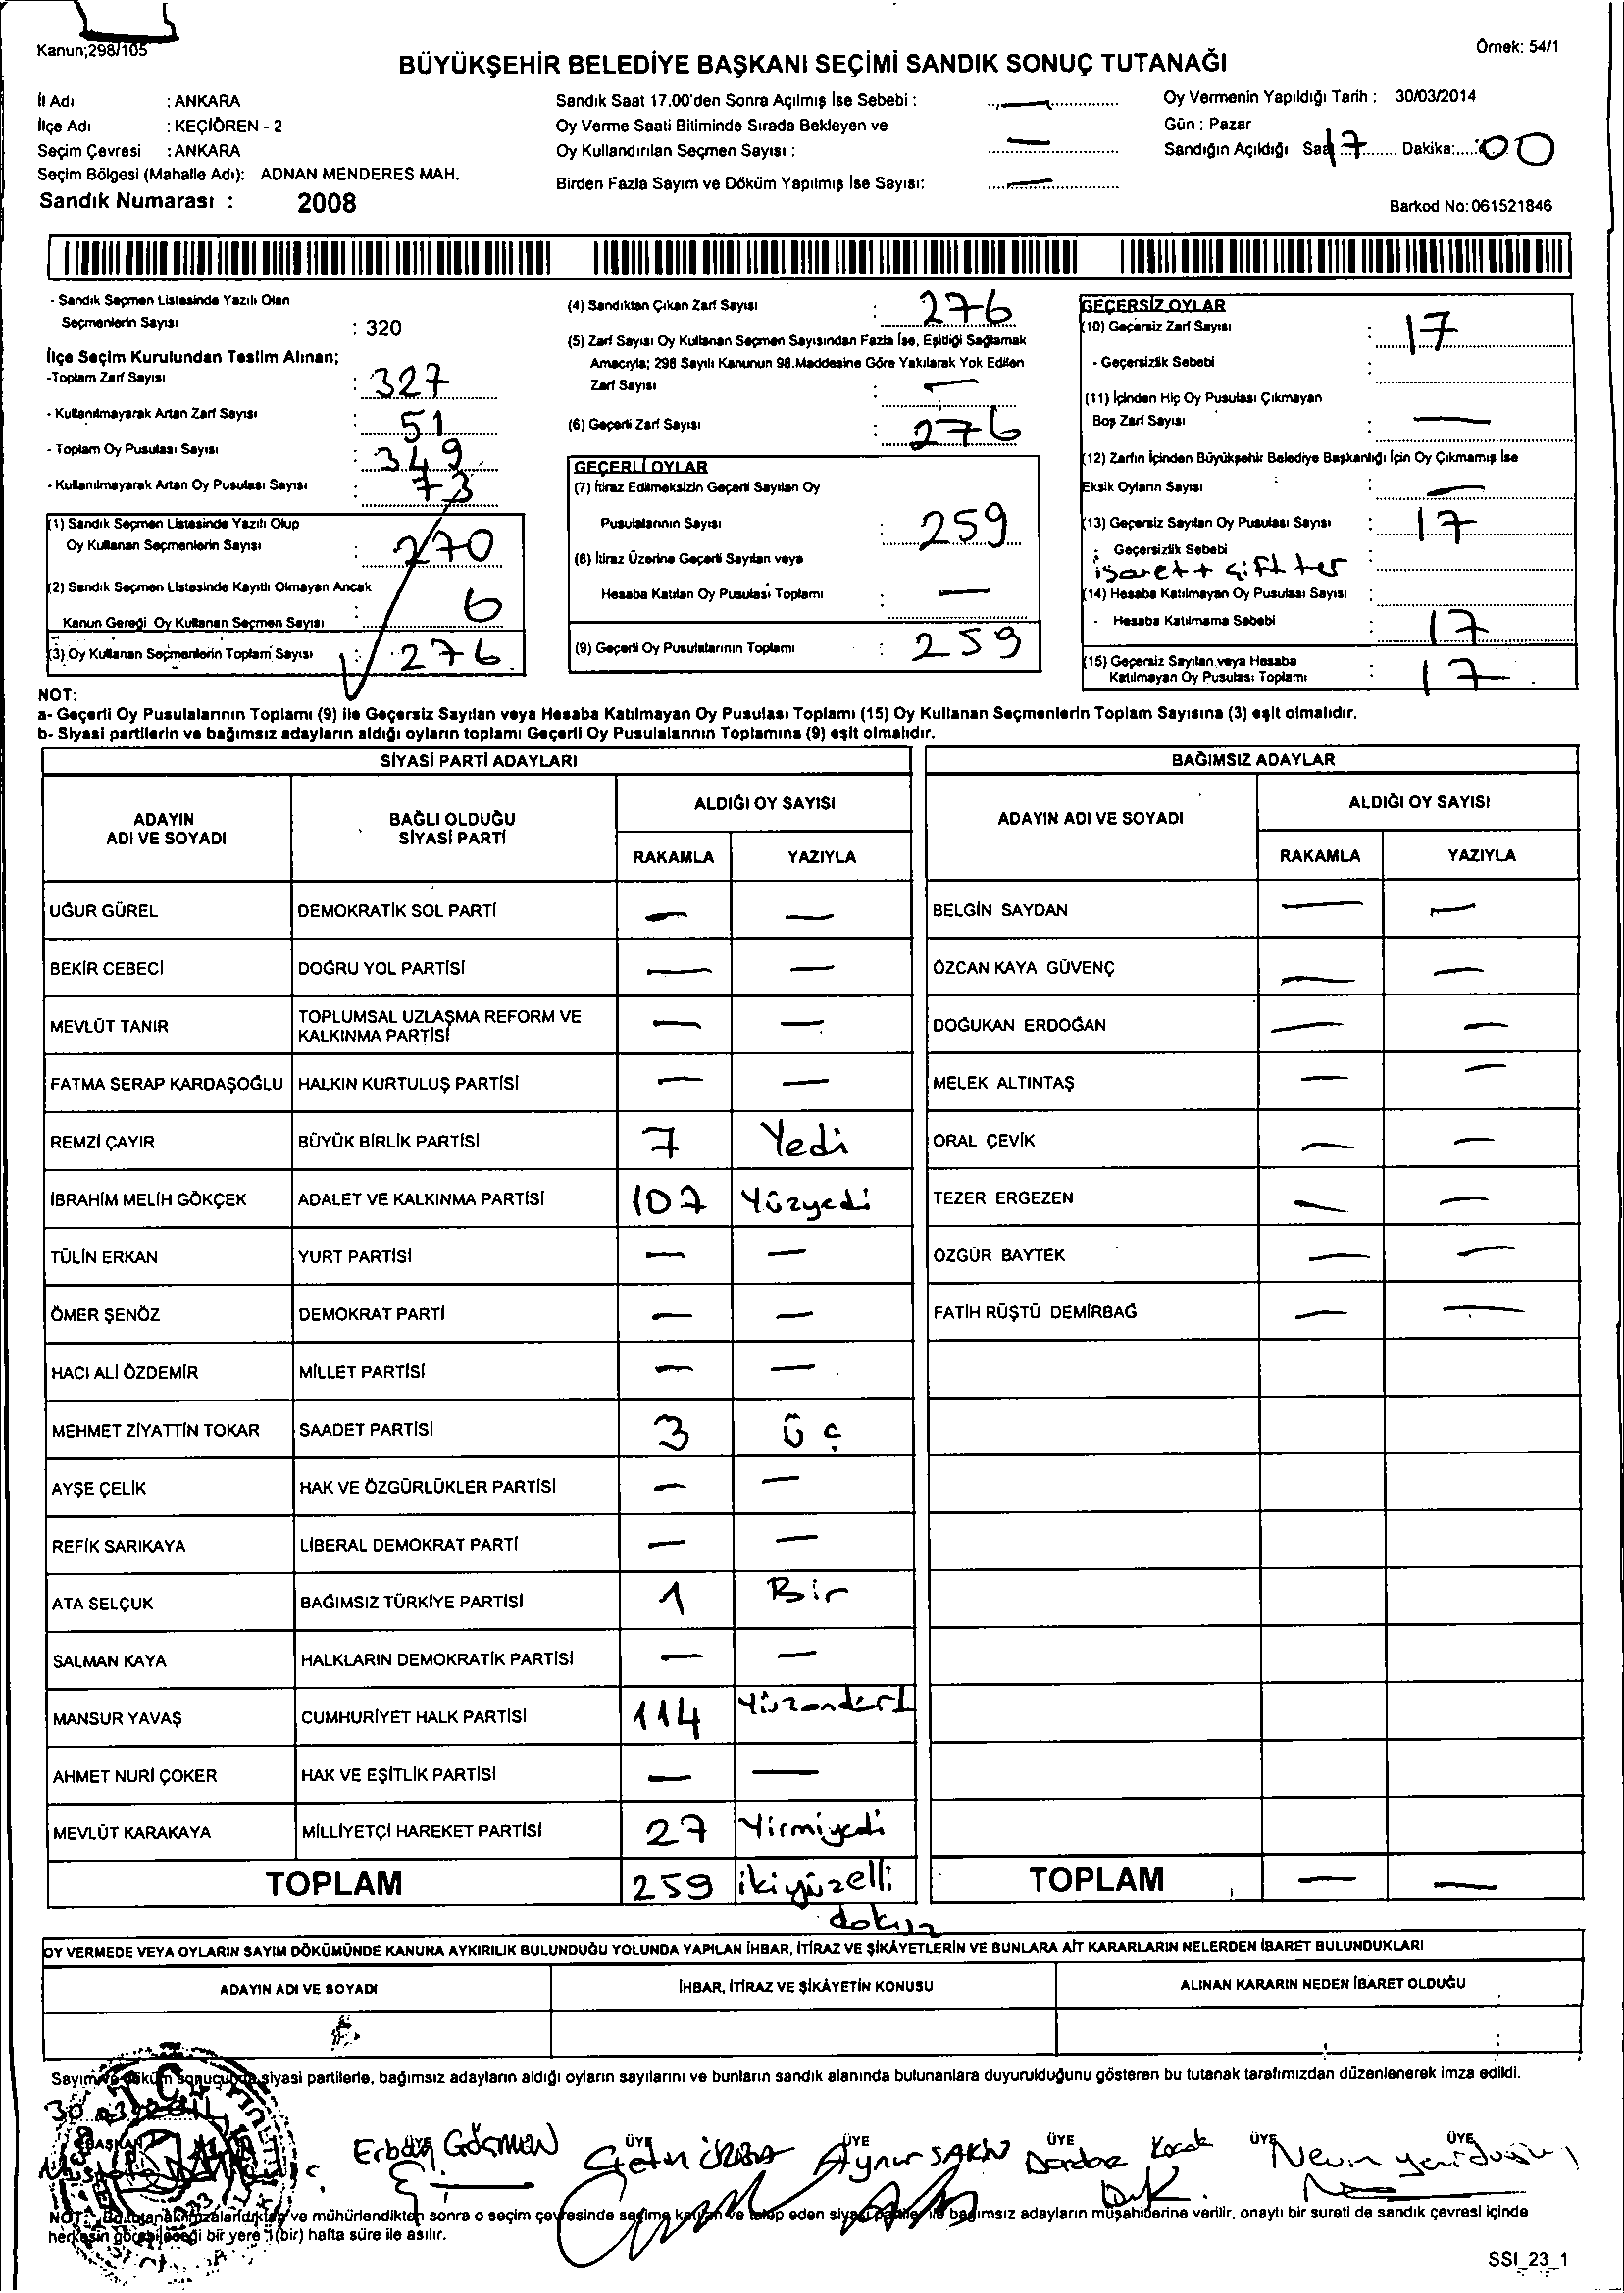 Kanun;298/105
Örnek: 54/1
BÜYÜKŞEHİR BELEDİYE BAŞKANI SEÇİMİ SANDIK SONUÇ TUTANAĞI
İl Adı : ANKARA
İlçe Adı : KEÇİÖREN - 2
Seçim Çevresi : ANKARA
Seçim Bölgesi (Mahalle Adı): ADNAN MENDERES MAH.
Sandık Numarası : 2008
Sandık Saat 17.00'den Sonra Açılmış İse Sebebi : —
Oy Verme Saati Bitiminde Sırada Bekleyen ve
Oy Kullandırılan Seçmen Sayısı : —
Birden Fazla Sayım ve Döküm Yapılmış İse Sayısı: —
Oy Vermenin Yapıldığı Tarih : 30/03/2014
Gün : Pazar
Sandığın Açıldığı Saat 17 Dakika: 00
Barkod No: 061521846
- Sandık Seçmen Listesinde Yazılı Olan
Seçmenlerin Sayısı : 320
İlçe Seçim Kurulundan Teslim Alınan;
-Toplam Zarf Sayısı : 327
- Kullanılmayarak Artan Zarf Sayısı : 51
- Toplam Oy Pusulası Sayısı : 349
- Kullanılmayarak Artan Oy Pusulası Sayısı : 73
(1) Sandık Seçmen Listesinde Yazılı Olup
Oy Kullanan Seçmenlerin Sayısı : 270
(2) Sandık Seçmen Listesinde Kayıtlı Olmayan Ancak
Kanun Gereği Oy Kullanan Seçmen Sayısı : 6
(3) Oy Kullanan Seçmenlerin Toplam Sayısı : 276
(4) Sandıktan Çıkan Zarf Sayısı : 276
(5) Zarf Sayısı Oy Kullanan Seçmen Sayısından Fazla İse, Eşitliği Sağlamak
Amacıyla; 298 Sayılı Kanunun 98.Maddesine Göre Yakılarak Yok Edilen
Zarf Sayısı : —
(6) Geçerli Zarf Sayısı : 276
GEÇERLİ OYLAR
(7) İtiraz Edilmeksizin Geçerli Sayılan Oy
Pusulalarının Sayısı : 259
(8) İtiraz Üzerine Geçerli Sayılan veya
Hesaba Katılan Oy Pusulası Toplamı : —
(9) Geçerli Oy Pusulalarının Toplamı : 259
GEÇERSİZ OYLAR
(10) Geçersiz Zarf Sayısı : 17
- Geçersizlik Sebebi :
(11) İçinden Hiç Oy Pusulası Çıkmayan
Boş Zarf Sayısı : —
(12) Zarfın İçinden Büyükşehir Belediye Başkanlığı İçin Oy Çıkmamış İse
Eksik Oyların Sayısı : —
(13) Geçersiz Sayılan Oy Pusulası Sayısı : 17
- Geçersizlik Sebebi
(14) Hesaba Katılmayan Oy Pusulası Sayısı :
- Hesaba Katılmama Sebebi : 17
(15) Geçersiz Sayılan veya Hesaba
Katılmayan Oy Pusulası Toplamı : 17
NOT:
a- Geçerli Oy Pusulalarının Toplamı (9) ile Geçersiz Sayılan veya Hesaba Katılmayan Oy Pusulası Toplamı (15) Oy Kullanan Seçmenlerin Toplam Sayısına (3) eşit olmalıdır.
b- Siyasi partilerin ve bağımsız adayların aldığı oyların toplamı Geçerli Oy Pusulalarının Toplamına (9) eşit olmalıdır.
SİYASİ PARTİ ADAYLARI
ADAYIN ADI VE SOYADI
BAĞLI OLDUĞU SİYASİ PARTİ
ALDIĞI OY SAYISI
RAKAMLA YAZIYLA
UĞUR GÜREL DEMOKRATİK SOL PARTİ — —
BEKİR CEBECİ DOĞRU YOL PARTİSİ — —
MEVLÜT TANIR TOPLUMSAL UZLAŞMA REFORM VE KALKINMA PARTİSİ — —
FATMA SERAP KARDAŞOĞLU HALKIN KURTULUŞ PARTİSİ — —
REMZİ ÇAYIR BÜYÜK BİRLİK PARTİSİ 7 Yedi
İBRAHİM MELİH GÖKÇEK ADALET VE KALKINMA PARTİSİ 107 Yüzyedi
TÜLİN ERKAN YURT PARTİSİ — —
ÖMER ŞENÖZ DEMOKRAT PARTİ — —
HACI ALİ ÖZDEMİR MİLLET PARTİSİ — —
MEHMET ZİYATTİN TOKAR SAADET PARTİSİ 3 Üç
AYŞE ÇELİK HAK VE ÖZGÜRLÜKLER PARTİSİ — —
REFİK SARIKAYA LİBERAL DEMOKRAT PARTİ — —
ATA SELÇUK BAĞIMSIZ TÜRKİYE PARTİSİ 1 Bir
SALMAN KAYA HALKLARIN DEMOKRATİK PARTİSİ — —
MANSUR YAVAŞ CUMHURİYET HALK PARTİSİ 114 Yüzondört
AHMET NURİ ÇOKER HAK VE EŞİTLİK PARTİSİ — —
MEVLÜT KARAKAYA MİLLİYETÇİ HAREKET PARTİSİ 27 Yirmiyedi
TOPLAM 259 ikiyüzelli dokuz
BAĞIMSIZ ADAYLAR
ADAYIN ADI VE SOYADI
ALDIĞI OY SAYISI
RAKAMLA YAZIYLA
BELGİN SAYDAN — —
ÖZCAN KAYA GÜVENÇ — —
DOĞUKAN ERDOĞAN — —
MELEK ALTINTAŞ — —
ORAL ÇEVİK — —
TEZER ERGEZEN — —
ÖZGÜR BAYTEK — —
FATİH RÜŞTÜ DEMİRBAĞ — —
TOPLAM — —
OY VERMEDE VEYA OYLARIN SAYIM DÖKÜMÜNDE KANUNA AYKIRILIK BULUNDUĞU YOLUNDA YAPILAN İHBAR, İTİRAZ VE ŞİKÂYETLERİN VE BUNLARA AİT KARARLARIN NELERDEN İBARET BULUNDUKLARI
ADAYIN ADI VE SOYADI İHBAR, İTİRAZ VE ŞİKÂYETİN KONUSU ALINAN KARARIN NEDEN İBARET OLDUĞU
Sayım ve döküm sonucunda siyasi partilerle, bağımsız adayların aldığı oyların sayılarını ve bunların sandık alanında bulunanlara duyurulduğunu gösteren bu tutanak tarafımızdan düzenlenerek imza edildi.
T.C.
BAŞKAN ÜYE ÜYE ÜYE ÜYE ÜYE ÜYE
GÖÇMEN Aynur Kocak Nevin
NOT: Bu tutanak imzalandıktan ve mühürlendikten sonra o seçim çevresinde seçime katılan ve talep eden siyasi partiler ile bağımsız adayların müşahitlerine verilir, onaylı bir sureti de sandık çevresi içinde
herkesin görebileceği bir yere 1(bir) hafta süre ile asılır.
SSI_23_1